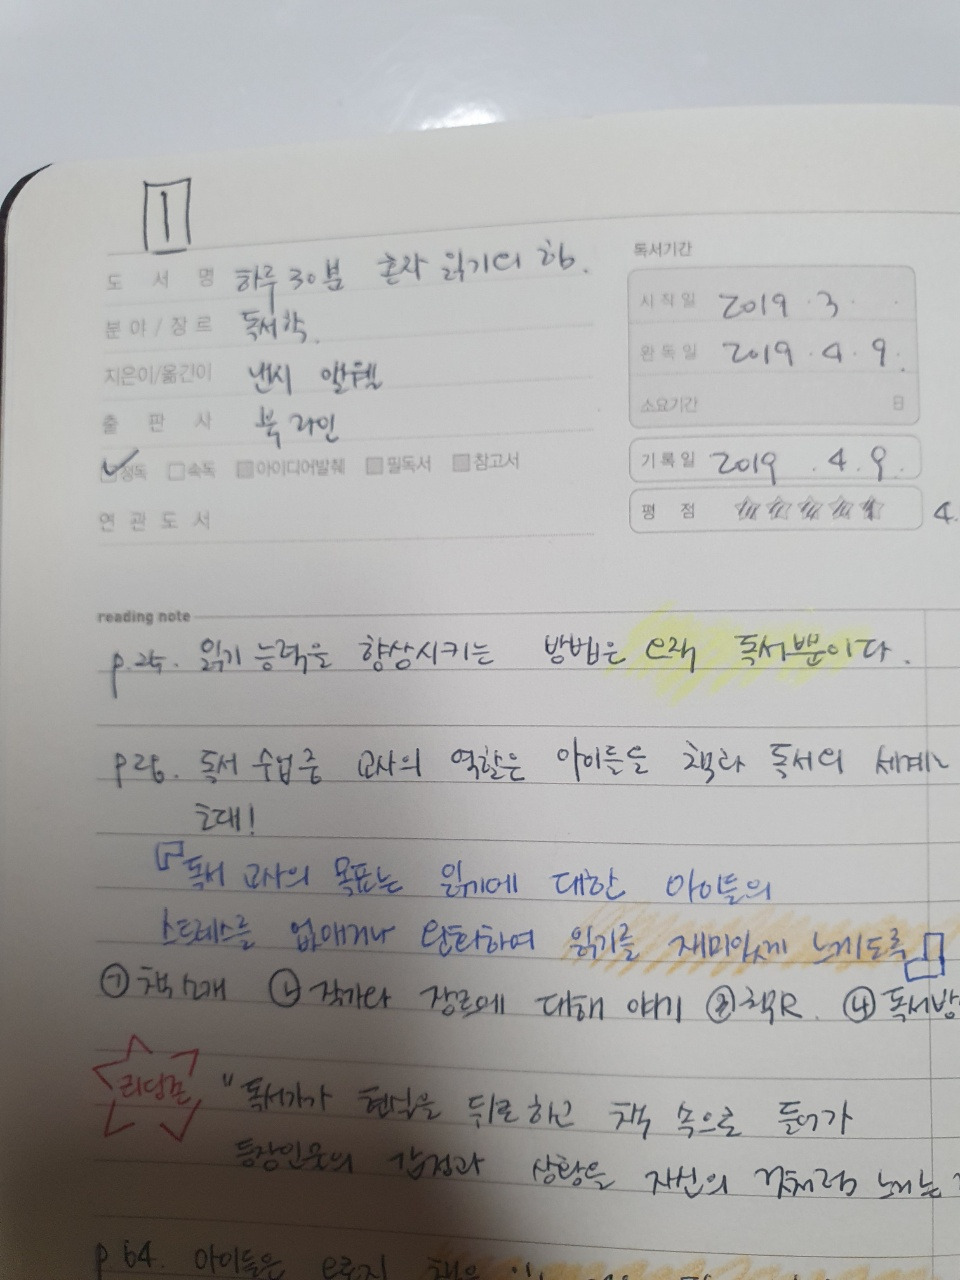 1
도서명 하루 30분 혼자 읽기의 힘.
분야/장르 독서학.
지은이/옮긴이 낸시 앳웰
출판사 북라인
정독 속독 아이디어발췌 필독서 참고서
연관도서
독서기간
시작일 2019 . 3 .
완독일 2019 . 4 . 9 .
소요기간 일
기록일 2019 . 4 . 9 .
평점 4.
reading note
p.25. 읽기 능력을 향상시키는 방법은 오직 독서뿐이다.
p26. 독서 수업중 교사의 역할은 아이들을 책과 독서의 세계
초대!
「독서 교사의 목표는 읽기에 대한 아이들의
스트레스를 없애거나 완화하여 읽기를 재미있게 느끼도록」
① 책소개 ② 작가와 장르에 대해 얘기 ③ 책 ④ 독서
리딩존 "독서가가 현실을 뒤로하고 책 속으로 들어가
등장인물의 감정과 상황을 자신의 것처럼 느끼는
p 64. 아이들은 오로지 책을